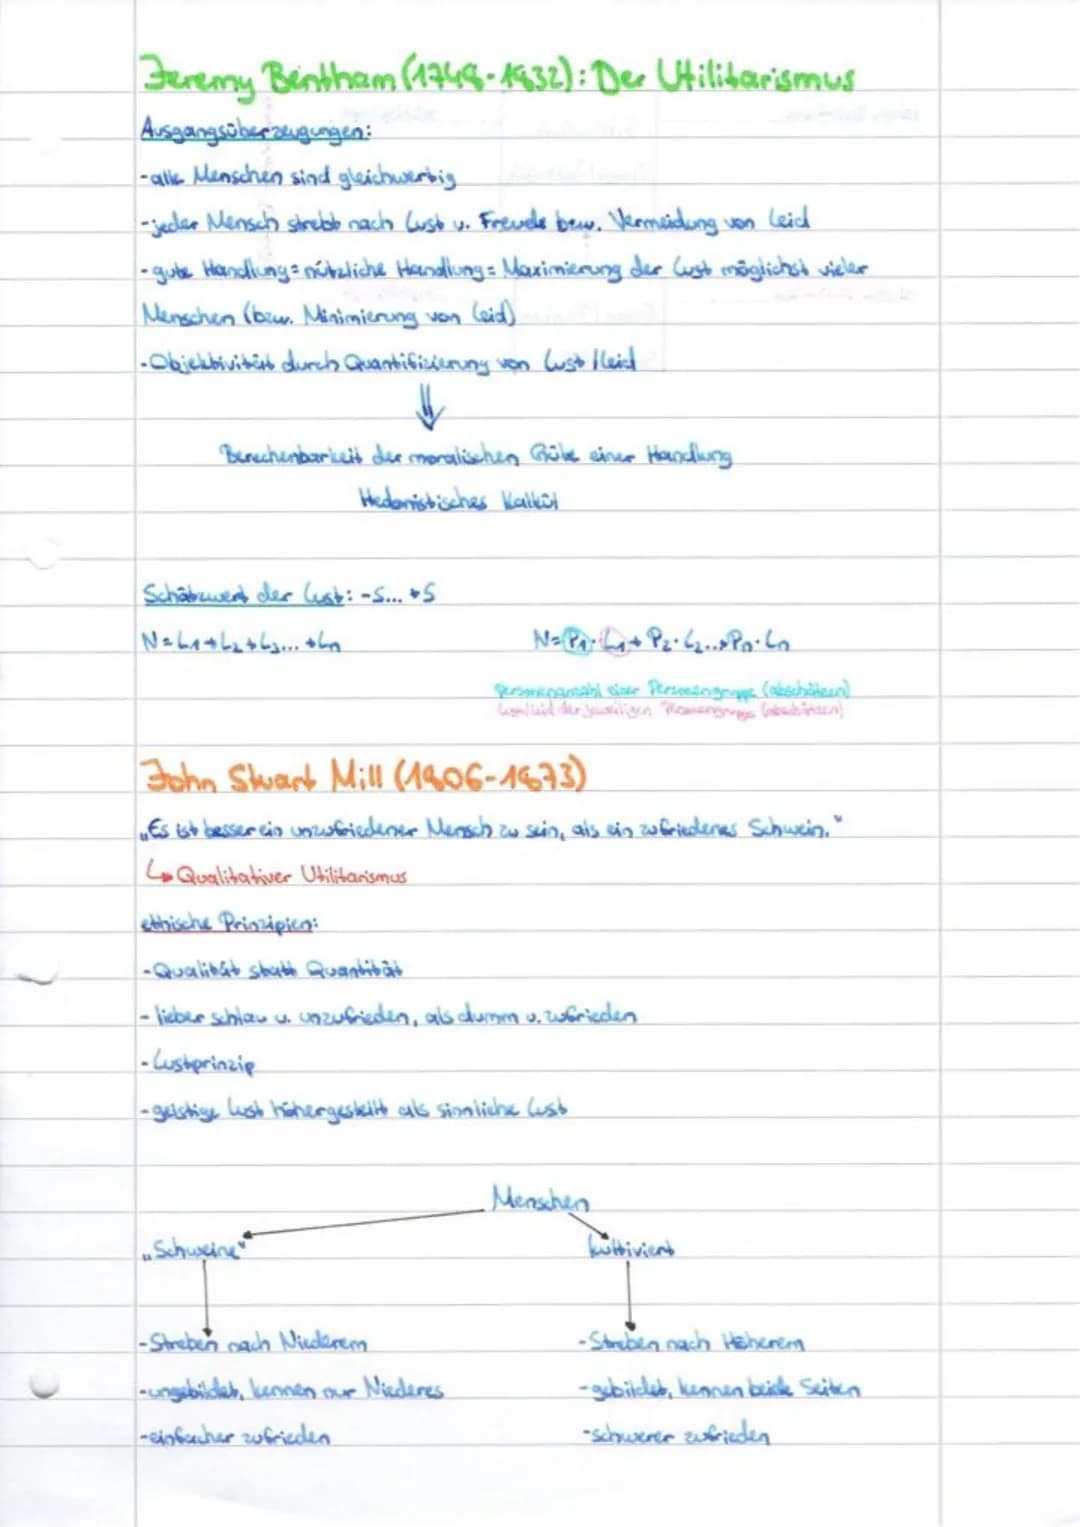 Jeremy Bentham (1748-1832): Der Utilitarismus
Ausgangsüberzeugungen:
-alle Menschen sind gleichwertig
-jeder Mensch strebt nach Lust u. Freude bzw. Vermeidung von Leid
-gute Handlung = nützliche Handlung = Maximierung der Lust möglichst vieler
Menschen (bzw. Minimierung von Leid)
-Objektivität durch Quantifizierung von Lust/Leid
⇓
Berechenbarkeit der moralischen Güte einer Handlung
Hedonistisches Kalkül
Schätzwert der Lust: -5... +5
N=L1+L2+L3... +Ln
N=P1·L1+P2·L2..+Pn·Ln
Personenanzahl einer Personengruppe (abschätzen)
Lust/Leid der jeweiligen Personengruppe (abschätzen)
John Stuart Mill (1806-1873)
„Es ist besser ein unzufriedener Mensch zu sein, als ein zufriedenes Schwein."
↳ Qualitativer Utilitarismus
ethische Prinzipien:
-Qualität statt Quantität
-lieber schlau u. unzufrieden, als dumm u. zufrieden
-Lustprinzip
-geistige Lust höhergestellt als sinnliche Lust
Menschen
„Schweine"
kultiviert
-Streben nach Niederem
-Streben nach Höherem
-ungebildet, kennen nur Niederes
-gebildet, kennen beide Seiten
-einfacher zufrieden
-schwerer zufrieden